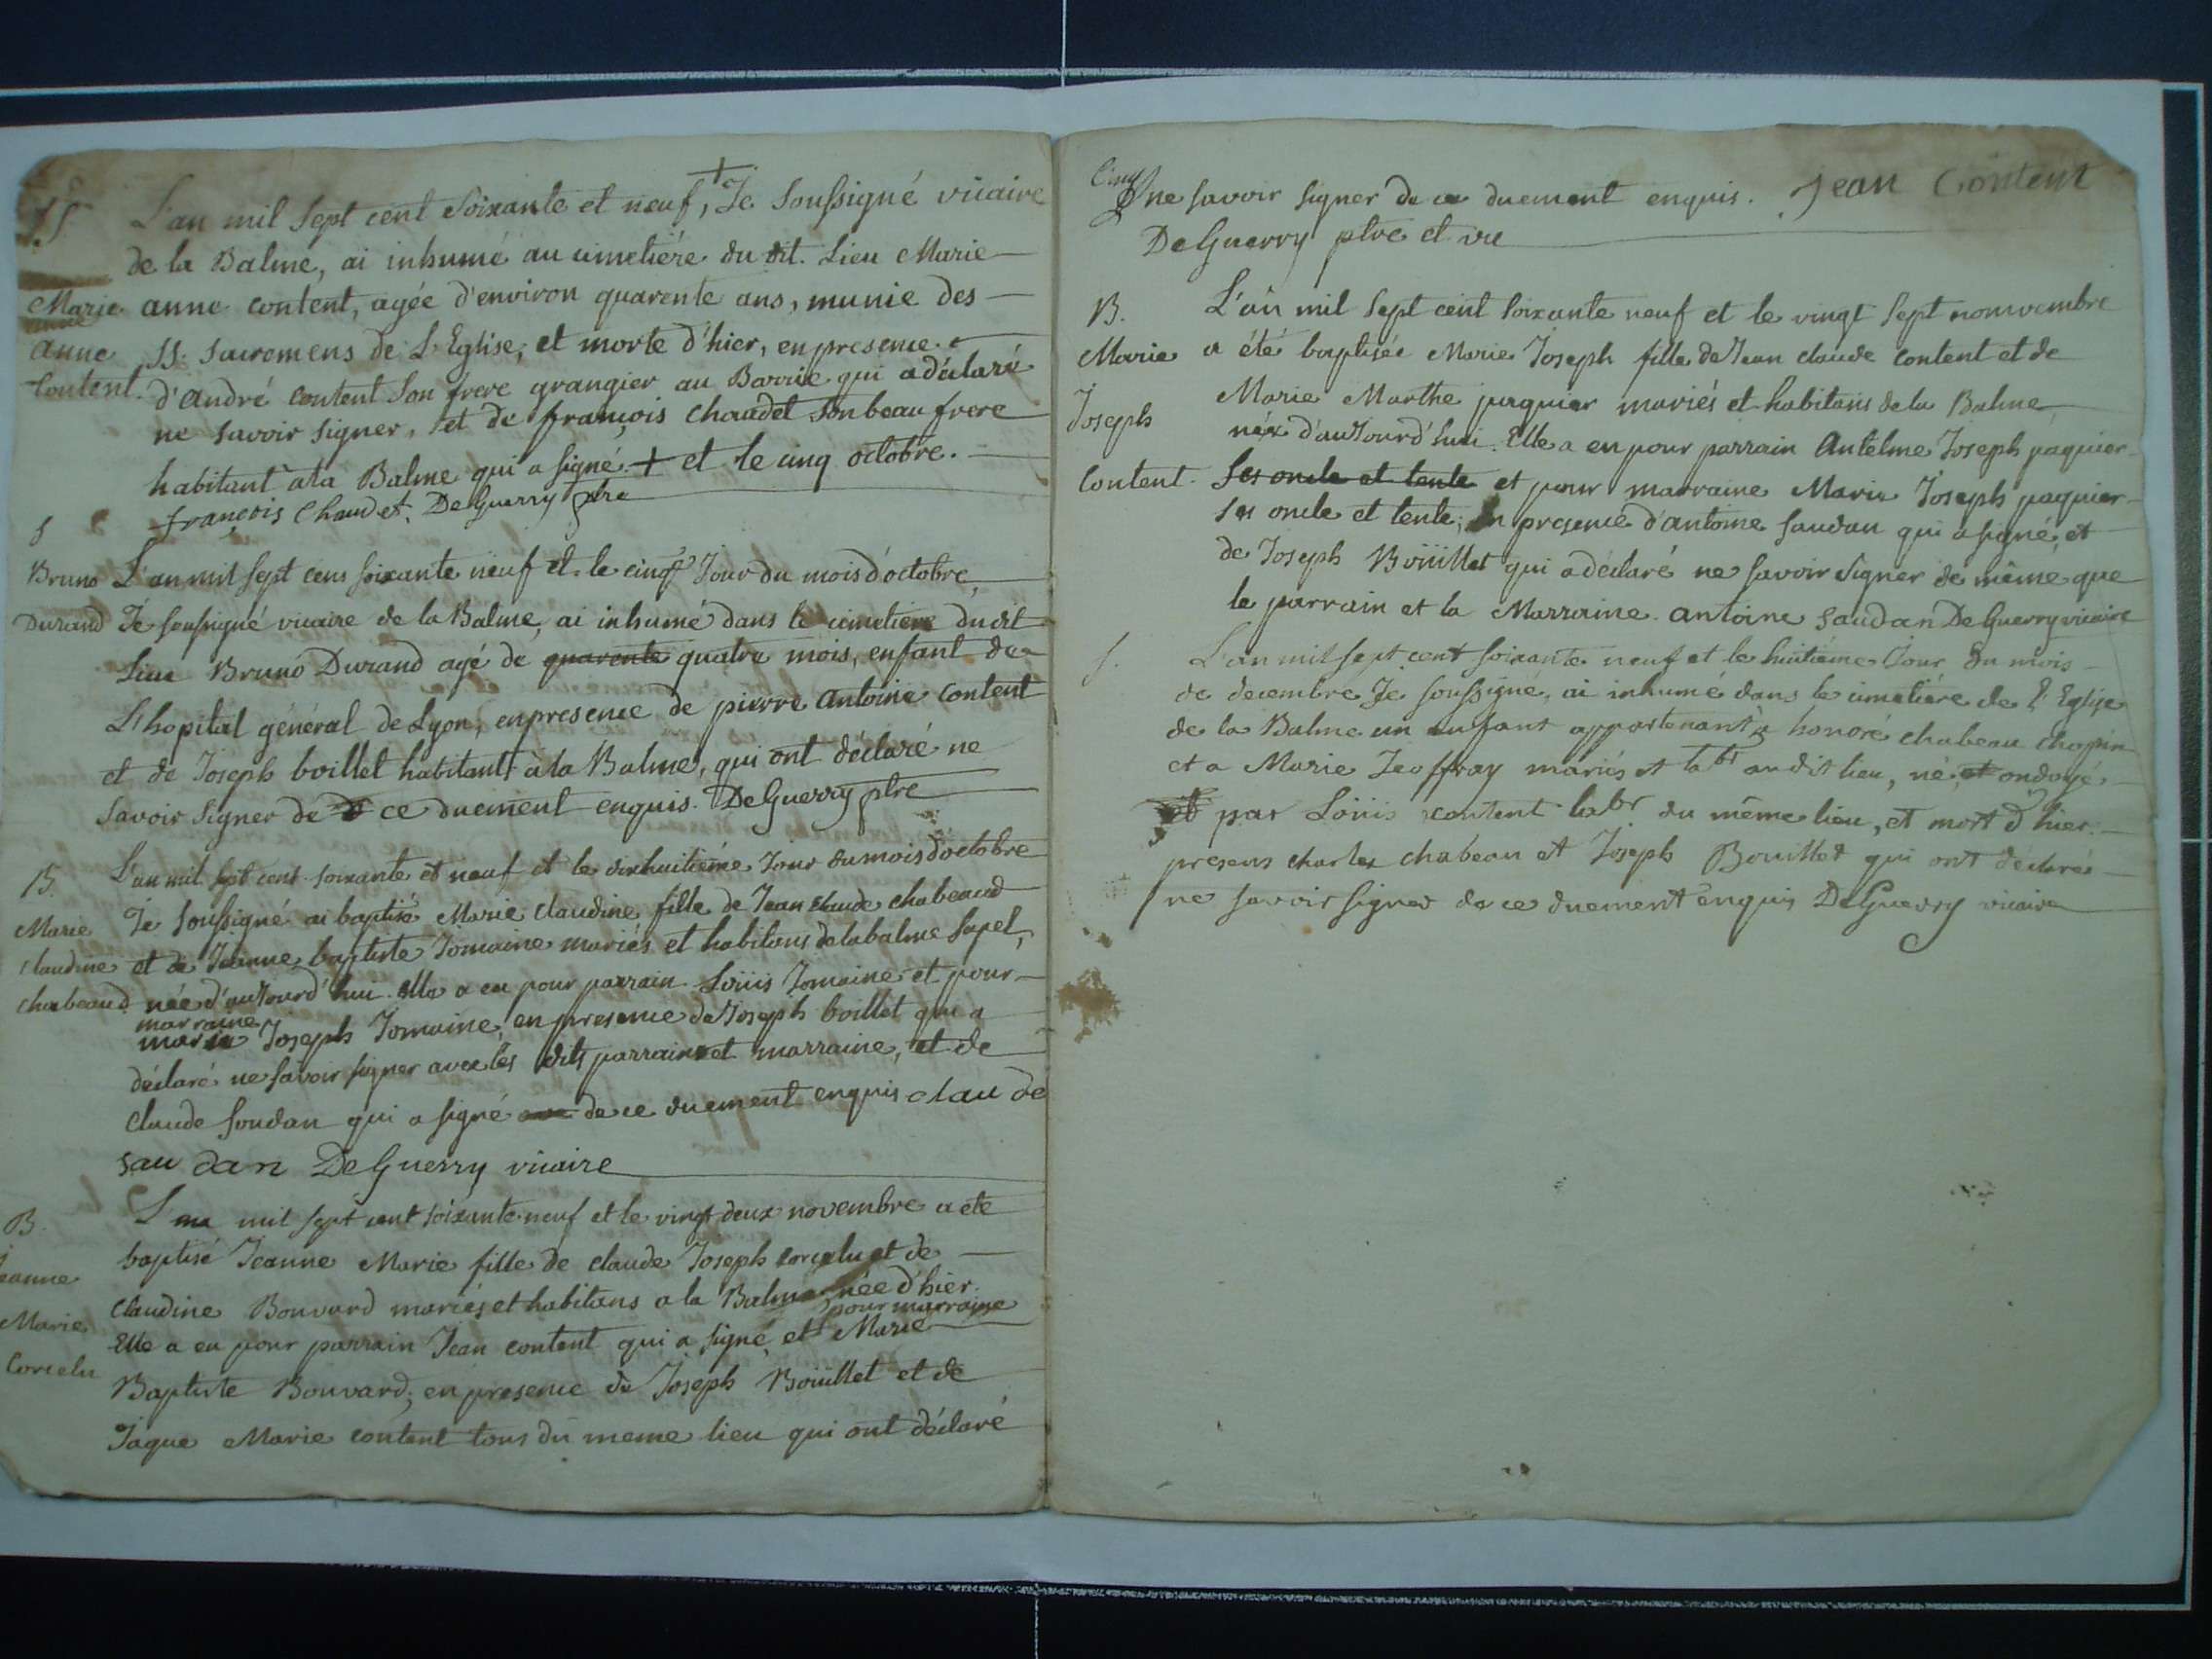 S
L'an mil sept cent Soixante et neuf, + Je Soussigné vicaire
de la Balme, ai inhumé au cimetiére du dit. Lieu Marie
Marie anne content, agée d'environ quarente ans, munie des
anne
anne SS. sacremens de L'Eglise, et morte d'hier, en presence
Content. d'andré content Son frere grangier au Barrie qui a déclaré
ne savoir signer, et de françois chaudet son beau frere
habitant a la Balme qui a signé. + et le cinq octobre.
françois Chaudet. DeGuerry ptre
S
Bruno L'an mil sept cens soixante neuf et le cinq Jour du mois d'octobre,
Durand Je soussigné vicaire de la Balme, ai inhumé dans le cimetiere du dit
Lieu Bruno Durand agé de quarente quatre mois, enfant de
L'hopital général de Lyon, en presence de pierre Antoine Content
et de Joseph boillet habitant à la Balme, qui ont déclaré ne
savoir signer de ce duement enquis. DeGuerry ptre
B. L'an mil sept cent soixante et neuf et le dixhuitiéme Jour du mois d'octobre
Marie Je soussigné ai baptisé Marie claudine fille de Jean claude chabeaud
claudine et de Jeanne baptiste Jomaine mariés et habitans de la balme Sapel,
chabeaud née d'auJourd'hui. elle a eu pour parrain Loüis Jomaine et pour
marraine
marie Joseph Jomaine, en presence de Joseph boillet qui a
déclaré ne savoir signer avec les dits parrain et marraine, et de
claude soudan qui a signé de ce duement enquis claude
saudan DeGuerry vicaire
B. L'an mil sept cent soixante neuf et le vingt deux novembre a eté
baptisé Jeanne Marie fille de claude Joseph corcelu et de
Jeanne
Claudine Bouvard mariés et habitans a la Balme, née d'hier.
pour marraine
Marie Elle a eu pour parrain Jean content qui a signé, et Marie
Corcelu Baptiste Bouvard, en presence de Joseph Boüillet et de
Jaque Marie content tous du meme lieu qui ont déclaré
Cinq
ne savoir signer de ce duement enquis. Jean Content
DeGuerry ptre et vre
B. L'an mil sept cent soixante neuf et le vingt sept nomvembre
Marie a été baptisée Marie Joseph fille de Jean claude content et de
Marie Marthe paquier mariés et habitans de la Balme
Joseph née d'auJourd'hui. Elle a eu pour parrain Antelme Joseph paquier
Content. Ses oncle et tente et pour marraine Marie Joseph paquier
ses oncle et tente, en presence d'antoine saudan qui a signé, et
de Joseph Boüillet qui a déclaré ne savoir signer de même que
le parrain et la Marraine. antoine saudan DeGuerry vicaire
S. L'an mil sept cent soixante neuf et le huitiéme Jour du mois
de decembre Je soussigné, ai inhumé dans le cimetiére de l'Eglise
de la Balme un enfant appartenant à honoré chabeau chopin
et a Marie Jeoffray mariés et labr au dit lieu, né, et ondoyé
par Loüis content labr du même lieu, et mort d'hier.
presens charles chabeau et Joseph Bouillet qui ont déclaré
ne savoir signer de ce duement enquis DeGuerry vicaire